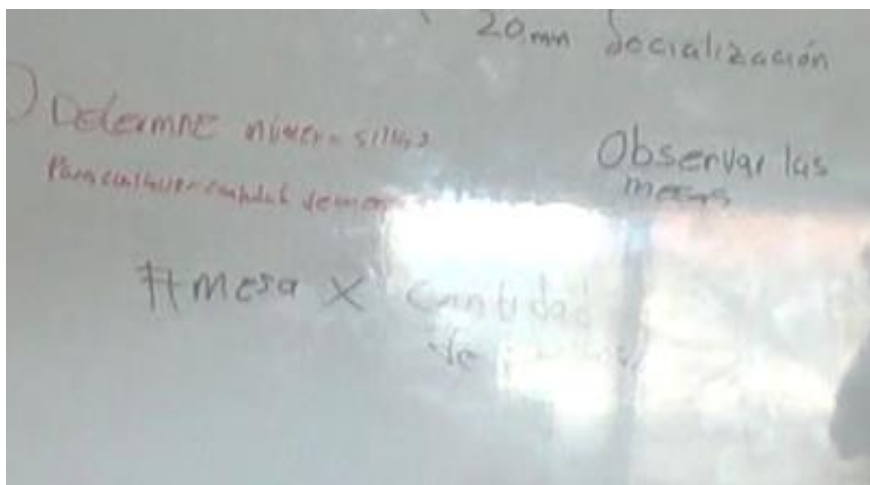 20 min Socialización
Determine número sillas
Para cualquier cantidad de mesas
Observar las
mesas
#mesa X Cantidad
de